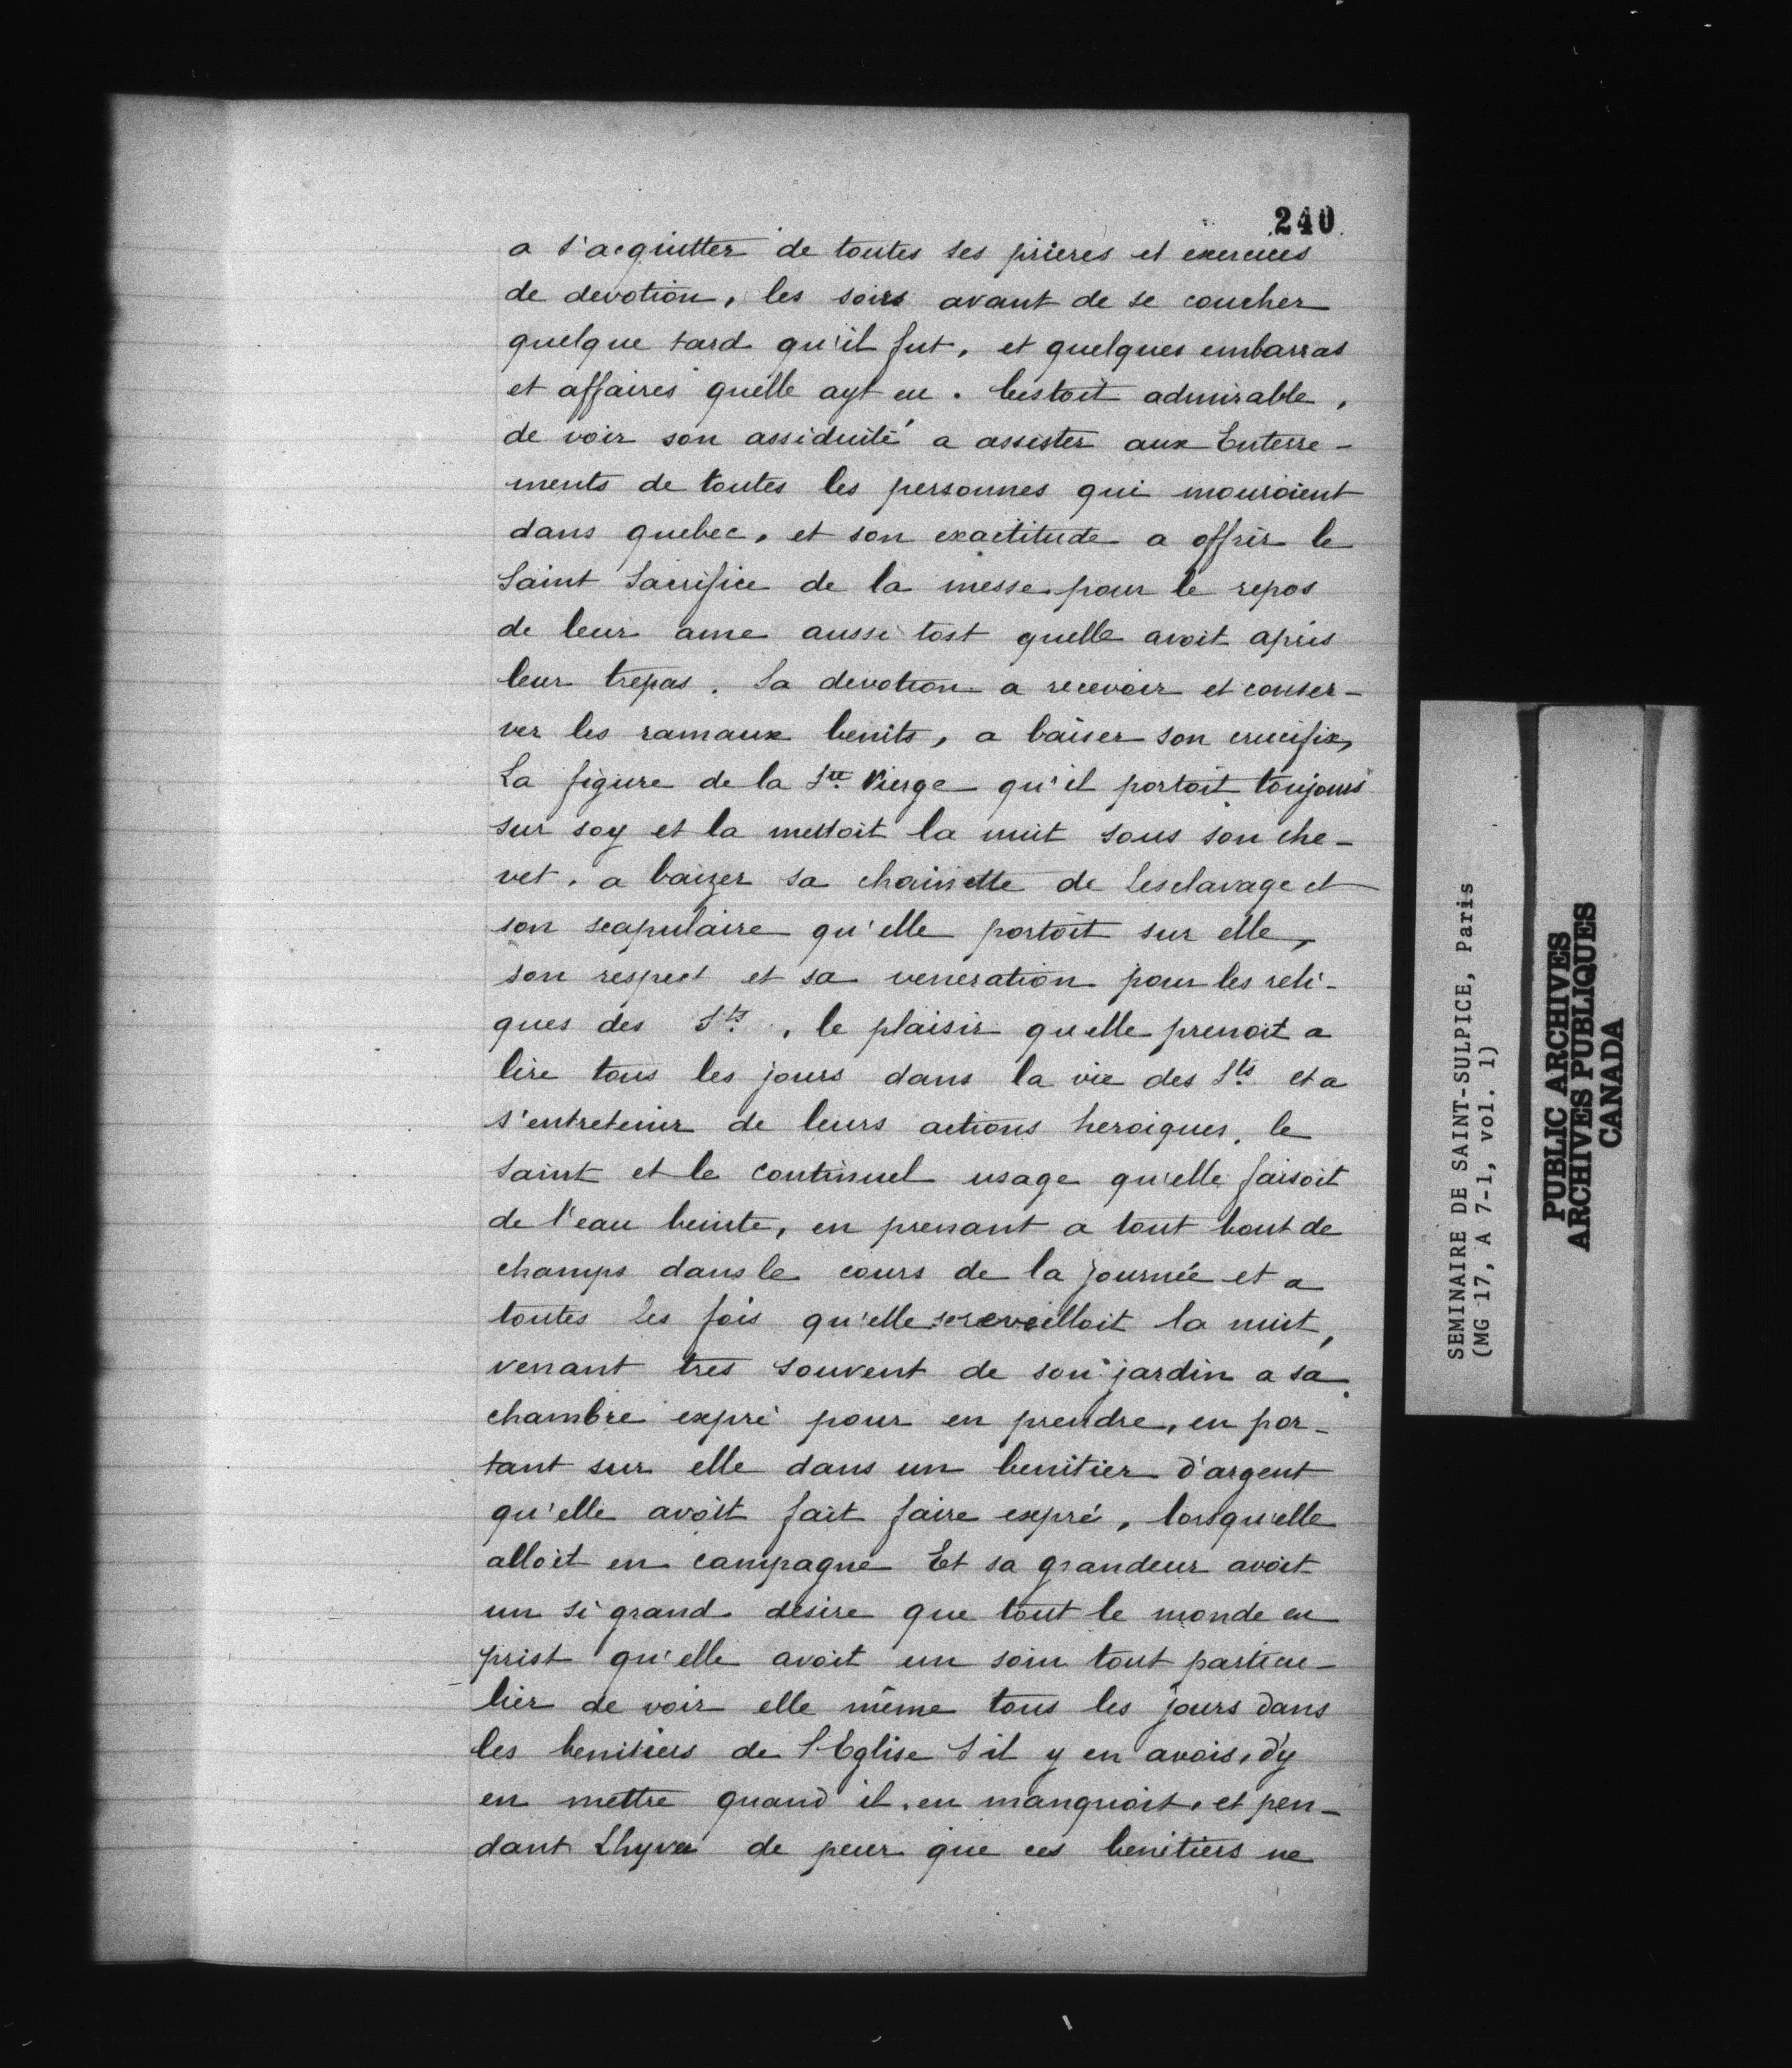 240
a s'acquitter de toutes ses prieres et exercices
de devotion, les soirs avant de se coucher
quelque tard qu'il fut, et quelques embarras
et affaires quelle ayt eu. Cestoit admirable,
de voir son assiduité a assister aux Enterre-
ments de toutes les personnes qui mouroient
dans quebec, et son exactitude a offrir le
Saint Sacrifice de la messe pour le repos
de leur ame aussi tost quelle avoit apris
leur trepas. Sa devotion a recevoir et conser-
ver les ramaux benits, a baiser son crucifix,
La figure de la Ste Vierge qu'il portoit toujours
sur soy et la mettoit la nuit sous son che-
vet, a baizer sa chainette de Lesclavage et
son scapulaire qu'elle portoit sur elle,
son respect et sa veneration pour les reli-
ques des Sts, le plaisir quelle prenoit a
lire tous les jours dans la vie des Sts et a
s'entretenir de leurs actions heroiques, le
saint et le continuel usage qu'elle faisoit
de l'eau beniste, en prenant a tout bout de
champs dans le cours de la journée et a
toutes les fois qu'elle se reveilloit la nuit,
venant tres souvent de son jardin a sa
chambre expré pour en prendre, en por-
tant sur elle dans un benitier d'argent
qu'elle avoit fait faire expré, lorsqu'elle
alloit en campagne Et sa grandeur avoit
un si grand desire que tout le monde en
prist qu'elle avoit un soin tout particu-
lier de voir elle même tous les jours dans
les benitiers de l'Eglise s'il y en avois, d'y
en mettre quand il en manquoit, et pen-
dant Lhyver de peur que ces benitiers ne
SEMINAIRE DE SAINT-SULPICE, Paris
(MG 17, A 7-1, vol. 1)
PUBLIC ARCHIVES
ARCHIVES PUBLIQUES
CANADA